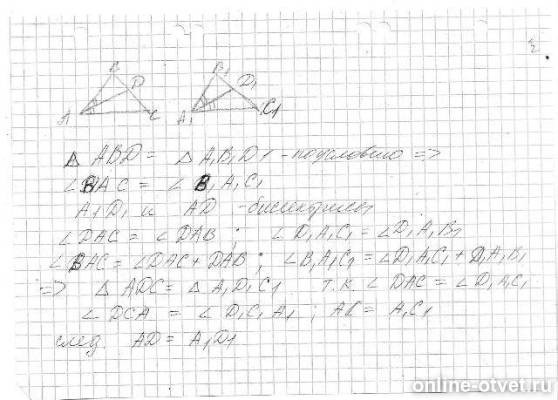 2.
B
D
A
C
B₁
D₁
A₁
C₁
△ ABD = △ A₁B₁D₁ - по условию =>
∠BAC = ∠B₁A₁C₁
A₁D₁ и AD - биссектрисы
∠DAC = ∠DAB ; ∠D₁A₁C₁ = ∠D₁A₁B₁
∠BAC = ∠DAC + DAB ; ∠B₁A₁C₁ = ∠D₁A₁C₁ + D₁A₁B₁
=> △ ADC = △ A₁D₁C₁ т.к ∠DAC = ∠D₁A₁C₁
∠DCA = ∠D₁C₁A₁ ; AC = A₁C₁
след. AD = A₁D₁
online-otvet.ru